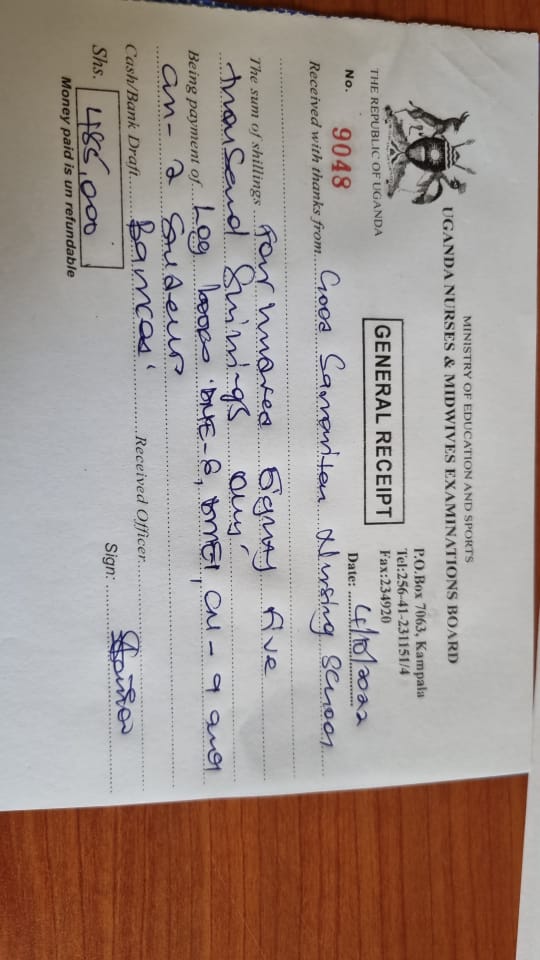 MINISTRY OF EDUCATION AND SPORTS
UGANDA NURSES & MIDWIVES EXAMINATIONS BOARD
P.O.Box 7063, Kampala
Tel:256-41-231151/4
Fax:234920
THE REPUBLIC OF UGANDA
GENERAL RECEIPT
No. 9048
Date: 4/10/2022
Received with thanks from Good Samaritan Nursing School
The sum of shillings Four hundred Eighty five
thousand Shillings only
Being payment of Log books DNE-2, CM-9 and
CN-2
Cash/Bank Draft Received Officer
Shs. 485,000 Sign:
Money paid is un refundable